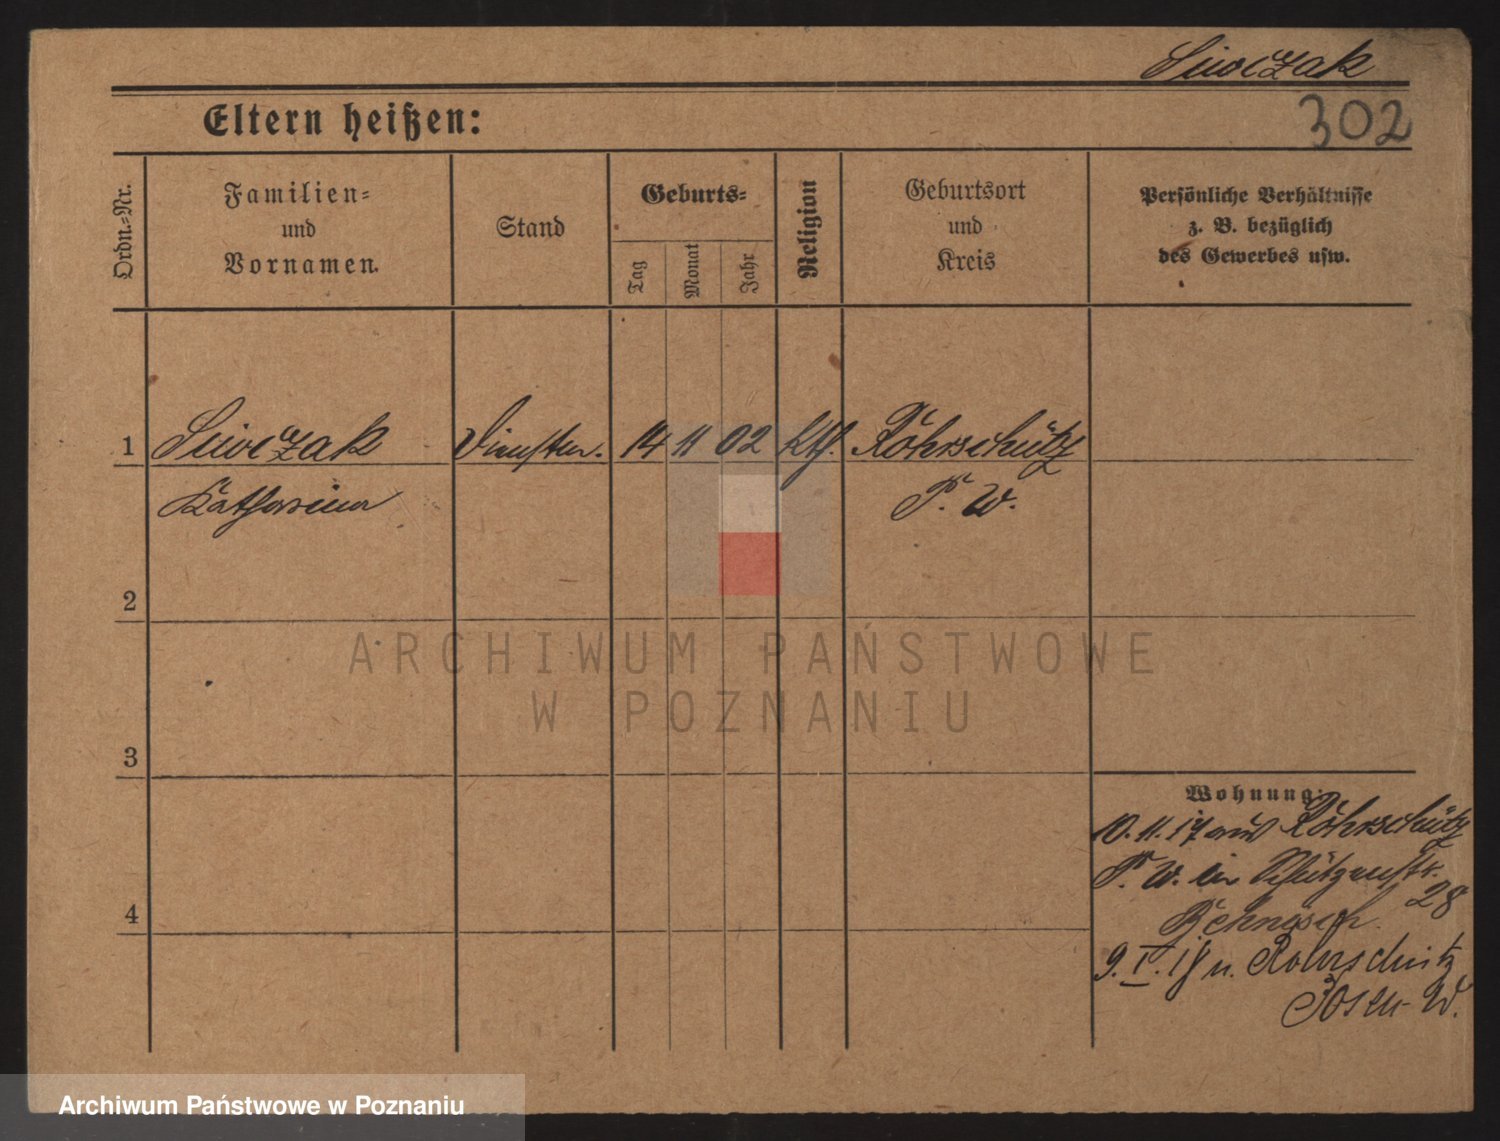 Siwczak
302
Eltern heißen:
Ordn.-Nr.
Familien-
und
Vornamen.
Stand
Geburts-
Tag
Monat
Jahr
Religion
Geburtsort
und
Kreis
Persönliche Verhältnisse
z. B. bezüglich
des Gewerbes usw.
1 Siwczak 14 11 02 Kth. Röhrschütz
Katharina P. W.
2
3
4
Wohnung:
10. 11. 17 aus Röhrschütz
P. W. in Schützenstr.
28
9. V. 18 n. Rohrschütz
Posen W.
ARCHIWUM PAŃSTWOWE
W POZNANIU
Archiwum Państwowe w Poznaniu